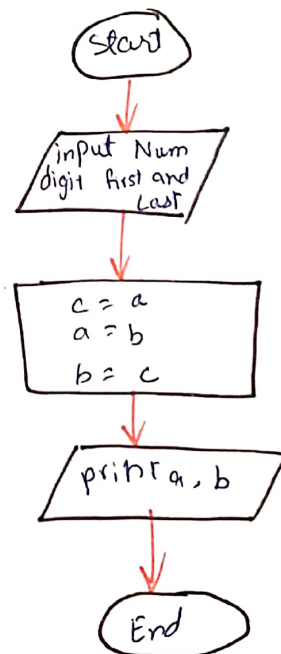 Start
input Num
digit first and
Last
c = a
a = b
b = c
print a, b
End